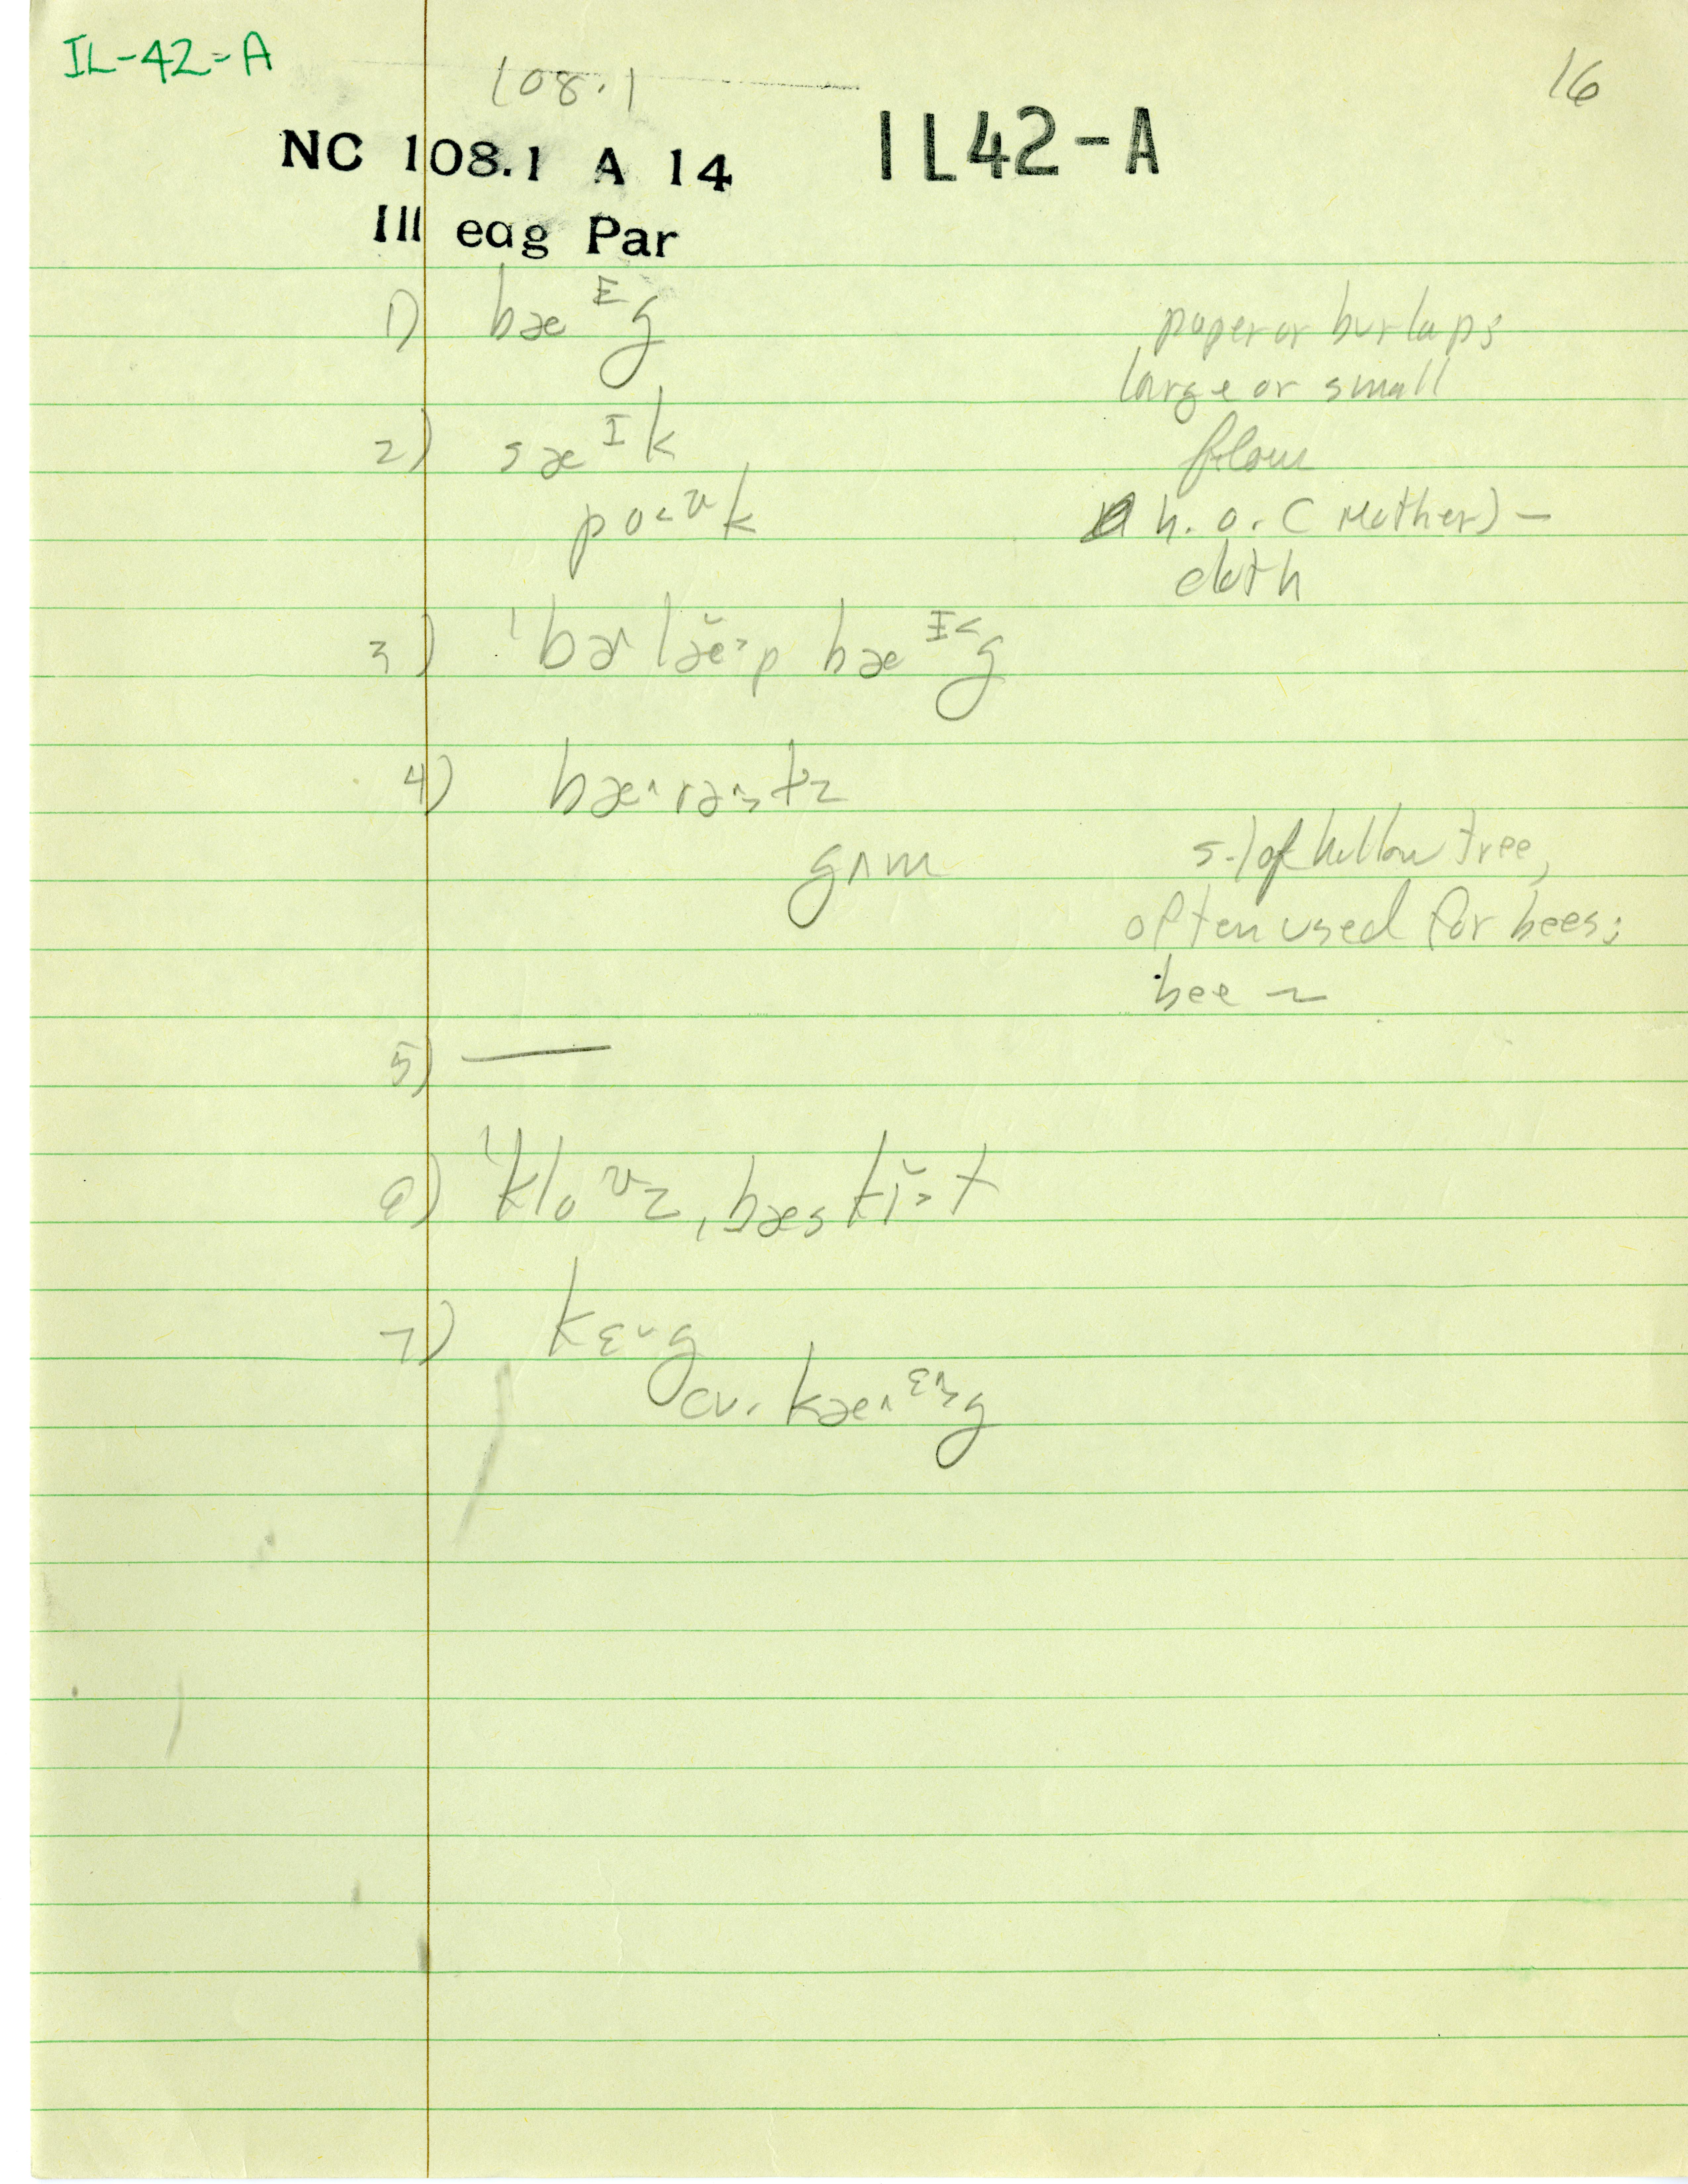 IL-42-A
108.1
16
NC 108.1 A 14
IL42-A
Ill eag Par
1) bæᴱg paper or burlaps
large or small
2) sæᴵk flour
po˂ᶷk h.o. (Mother) –
cloth
3) ˈbɚlæ̆˃p bæᴵ˂g
4) bæ˄
gʌm s.) of hollow tree,
often used for bees;
bee ~
5) —
6) ˈkloᶷz ˌbæskĭ˃t
7) kɛ˅g
cv. kæ˄ᵋg